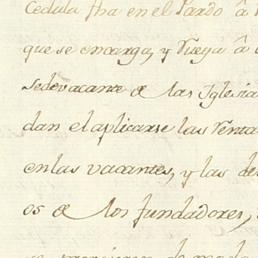 Cedula fha en el Pardo â
que se encarga, y Ruega â
Sedevacante de las Iglesia
dan el aplicarse las Renta
en las vacantes, y las de
os de los fundadores,